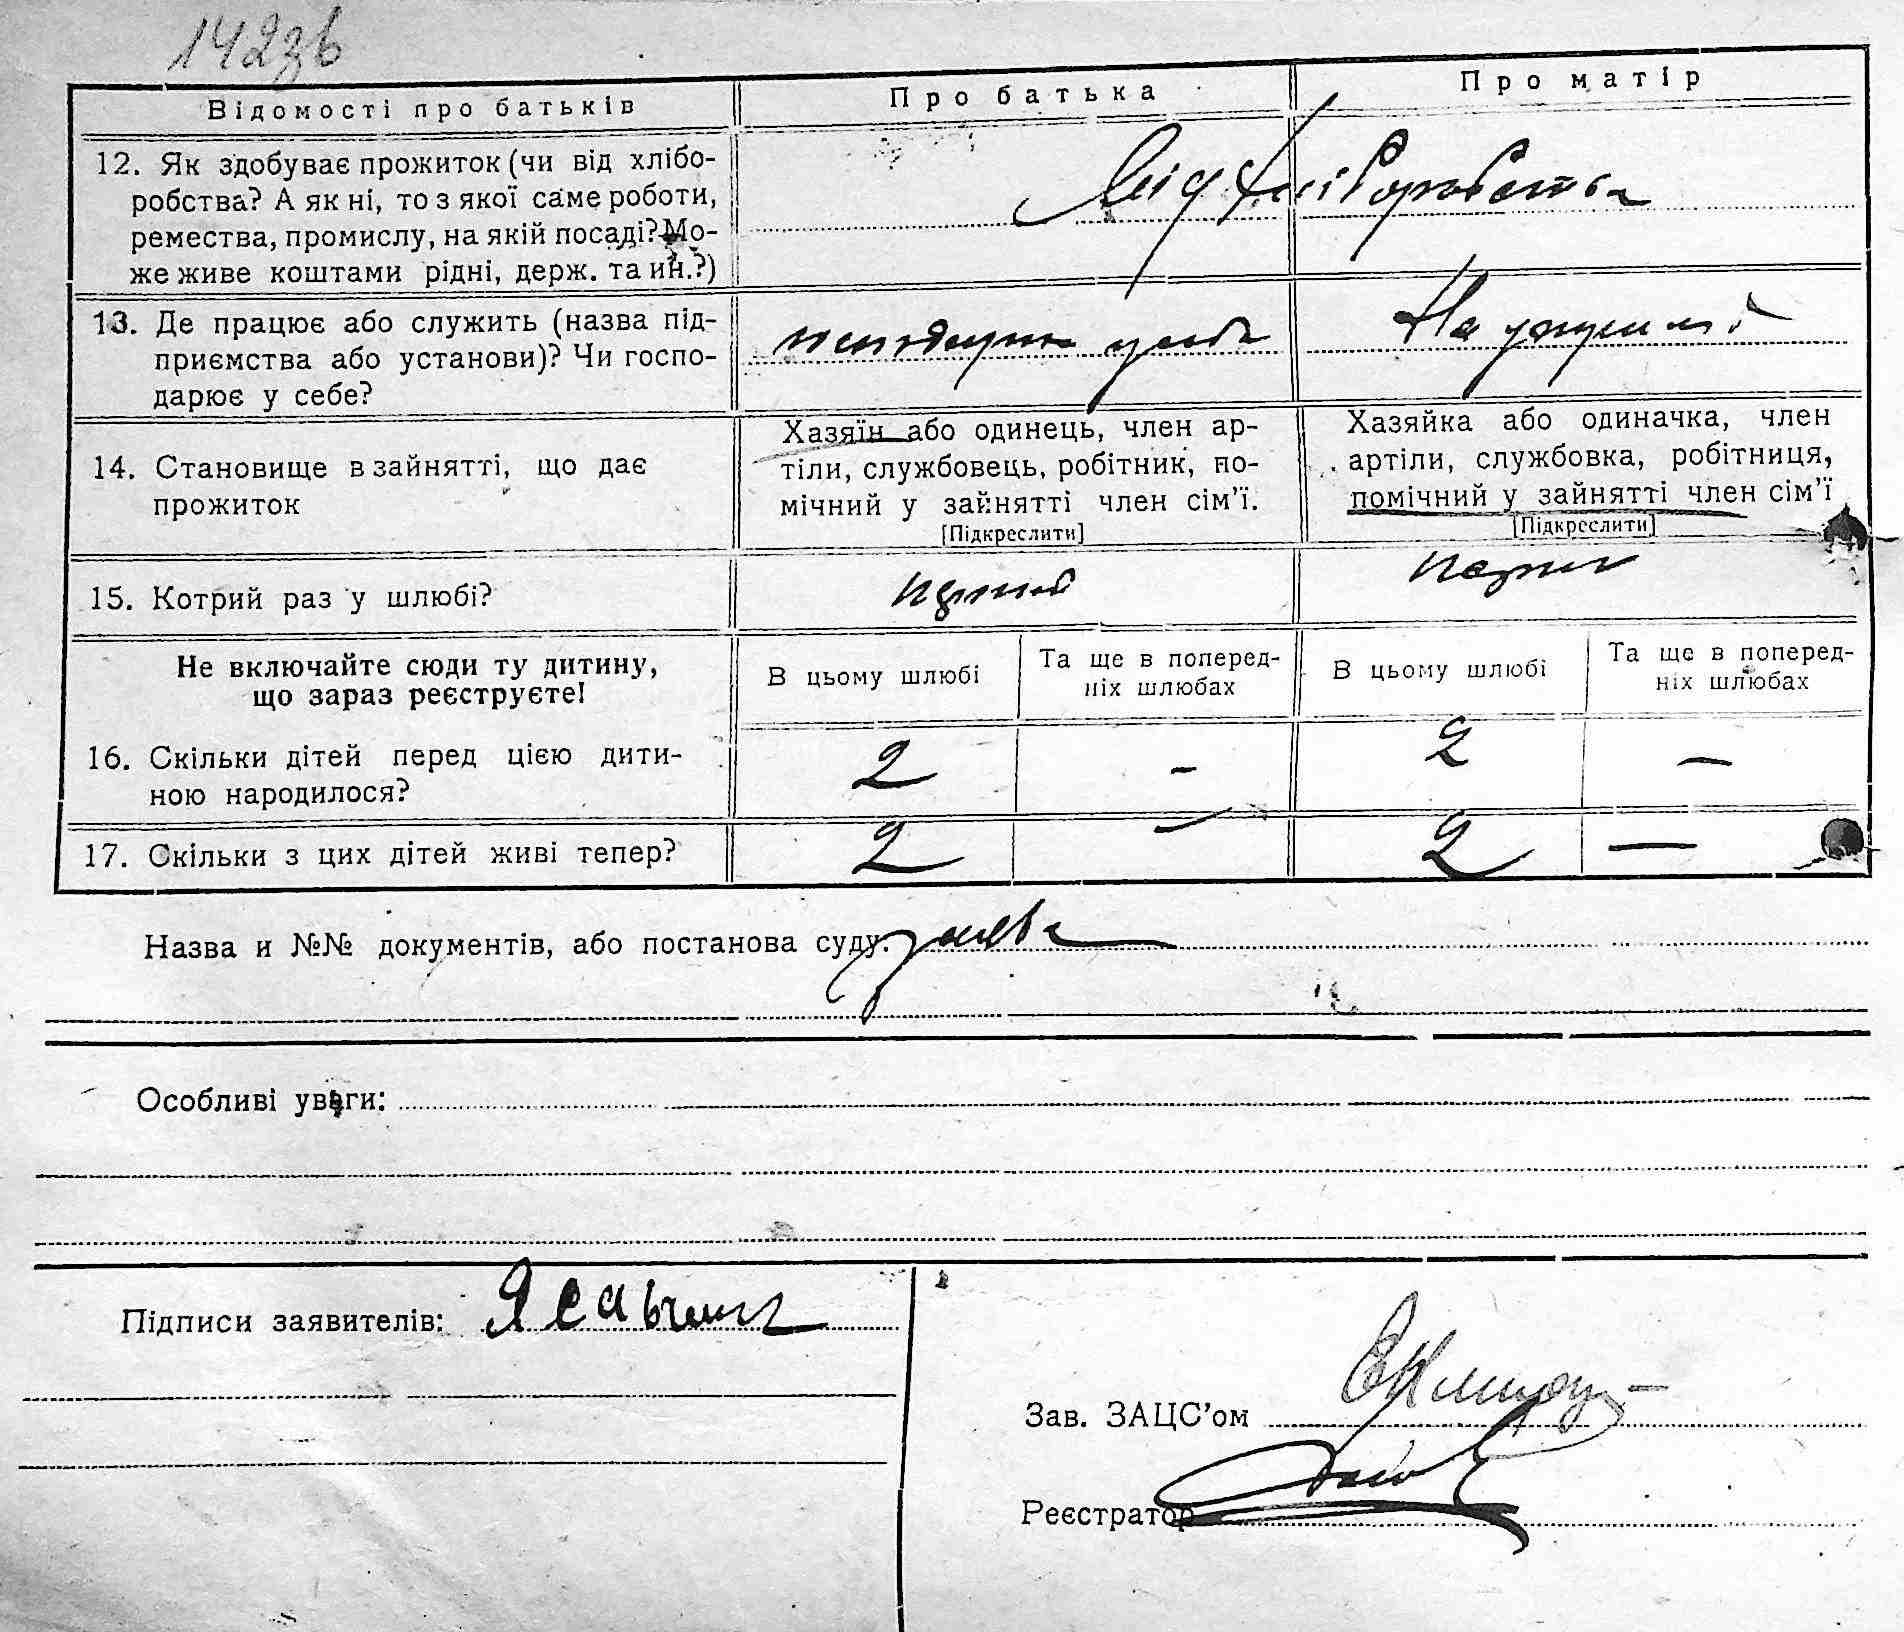 142зв
Відомості про батьків
Про батька
Про матір
12. Як здобуває прожиток (чи від хлібо-
робства? А як ні, то з якої саме роботи,
ремества, промислу, на якій посаді? Мо-
же живе коштами рідні, держ. та ин.?)
Від хліборобства
13. Де працює або служить (назва під-
приємства або установи)? Чи госпо-
дарює у себе?
14. Становище в зайнятті, що дає
прожиток
Хазяїн або одинець, член ар-
тіли, службовець, робітник, по-
мічний у зайнятті член сім’ї.
[Підкреслити]
Хазяйка або одиначка, член
артіли, службовка, робітниця,
помічний у зайнятті член сім’ї
[Підкреслити]
15. Котрий раз у шлюбі?
Не включайте сюди ту дитину,
що зараз реєструєте!
В цьому шлюбі
Та ще в поперед-
ніх шлюбах
В цьому шлюбі
Та ще в поперед-
ніх шлюбах
16. Скільки дітей перед цією дити-
ною народилося?
2 - 2 —
17. Скільки з цих дітей живі тепер?
2 — 2 —
Назва и №№ документів, або постанова суду: заява
Особливі уваги:
Підписи заявителів:
Зав. ЗАЦС’ом
Реєстратор